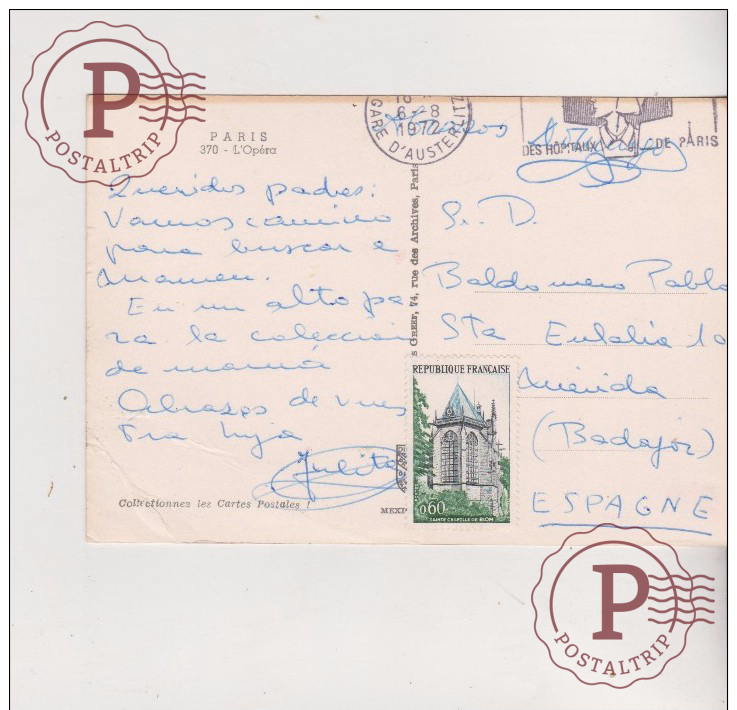 P
POSTALTRIP
PARIS
370 - L'Opéra
Queridos padres:
Vamos camino
para buscar a
Mamen.
En un alto pa
ra la coleccion
de mamá
Abrazos de vues
tra hija
Julita
Collectionnez les Cartes Postales !
MEXI
GREFF, 74, rue des Archives, Paris
18
6-8
1972
GARE D'AUSTERLITZ
DES HÔPITAUX DE PARIS
Sr. D.
Baldomero Pablo
Sta Eulalia 10
Mérida
(Badajoz)
ESPAGNE
REPUBLIQUE FRANÇAISE
0,60
SAINTE CHAPELLE DE RIOM
P
POSTALTRIP